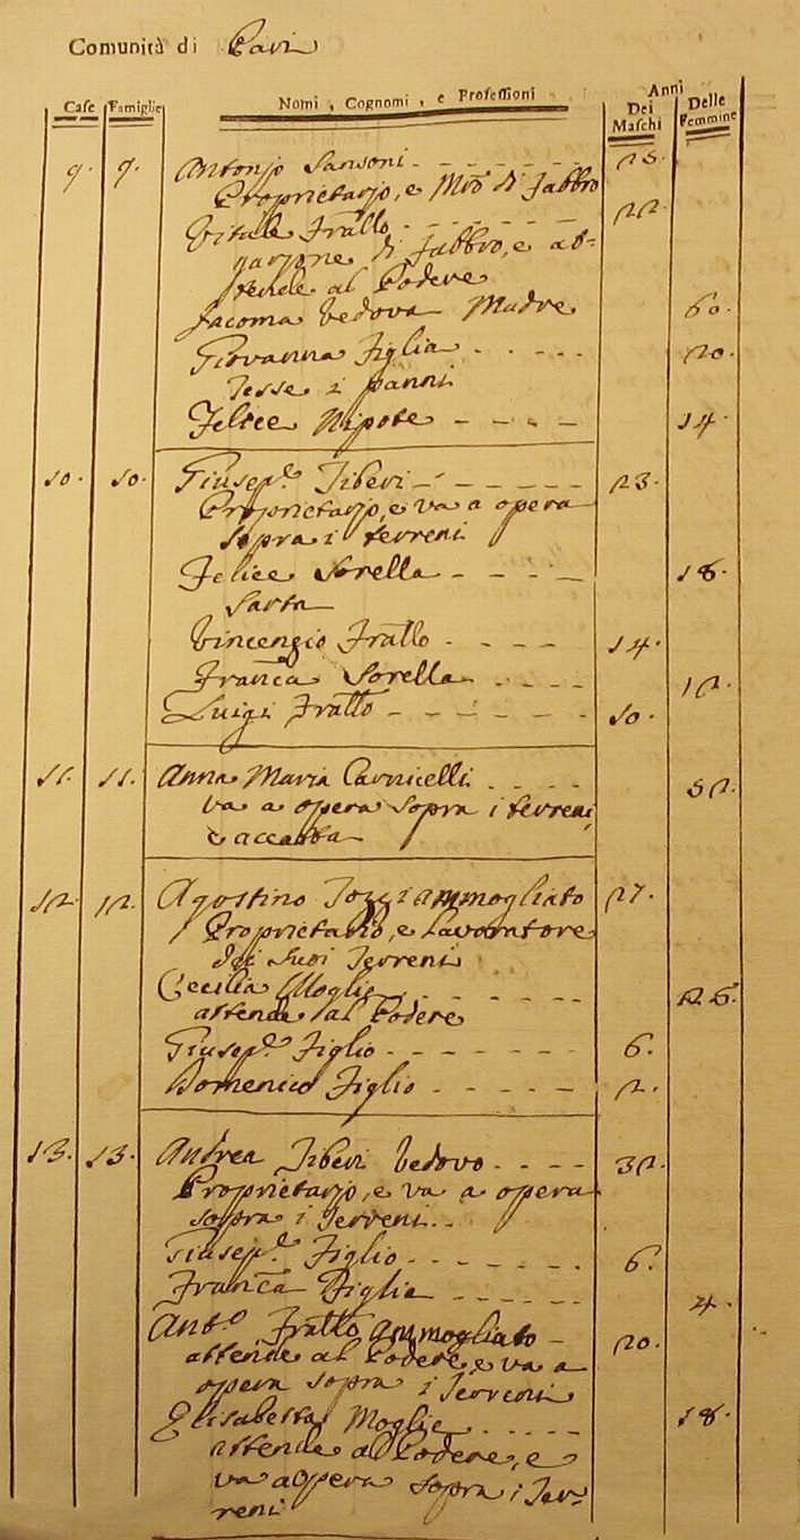 Comunità di
Case Famiglie Nomi, Cognomi, e Professioni Anni
Dei Maschi Delle Femmine
9. 9. Antonio Sansoni 26.
Proprietario, e Mro di Fabbro
Vitale Fratello 22.
garzone di Fabbro, e at-
tende al Podere
Jacoma Vedova Madre 60.
Giovanna Figlia 20.
Tesse i panni
Felice Nipote 14.
10. 10. Giusepe Tiberi 23.
Proprietario, e va a opera
sopra i terreni
Felice Sorella 18.
Sarta
Vincenzio Fratello 14.
Franca Sorella 12.
Luigi Fratto 10.
11. 11. Anna Maria Carnicelli 62.
va a opera sopra i terreni
e accatta
12. 12. Agostino ammogliato 27.
Proprietario, e Lavoratore
dei suoi Terreni
Cecilia Moglie 26.
attende al Podere
Giusepe Figlio 6.
Domenico Figlio 2.
13. 13. Andrea Tiberi Vedovo 32.
Proprietario, e va a opera
sopra i Terreni
Giusepe Figlio 6.
Franca Figlia 4.
Anto Fratto ammogliato 20.
attende al Podere, e va a
opera sopra i Terreni
Elisabetta Moglie 18.
attende al Podere, e
va a opera sopra i Ter-
reni